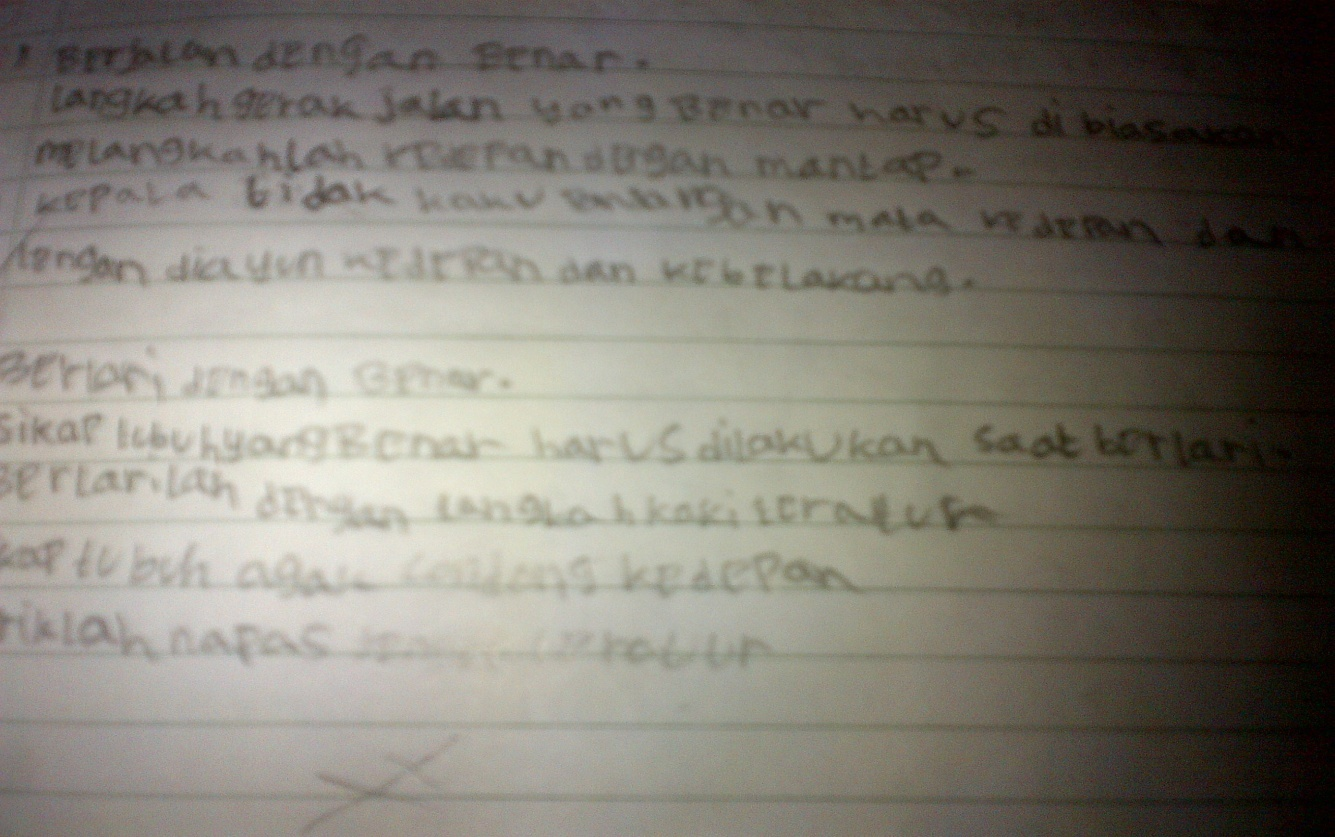 1 Berjalan dengan Benar.
langkah gerak jalan yang Benar harus di biasakan
melangkahlah kedepan dengan mantap.
kepala tidak kaku pandangan mata kedepan dan
lengan diayun kedepan dan kebelakang.
Berlari dengan Benar.
Sikap tubuh yang Benar harus dilakukan saat berlari.
Berlarilah dengan langkah kaki teratur
kap tubuh agak condong kedepan
riklah napas teratur